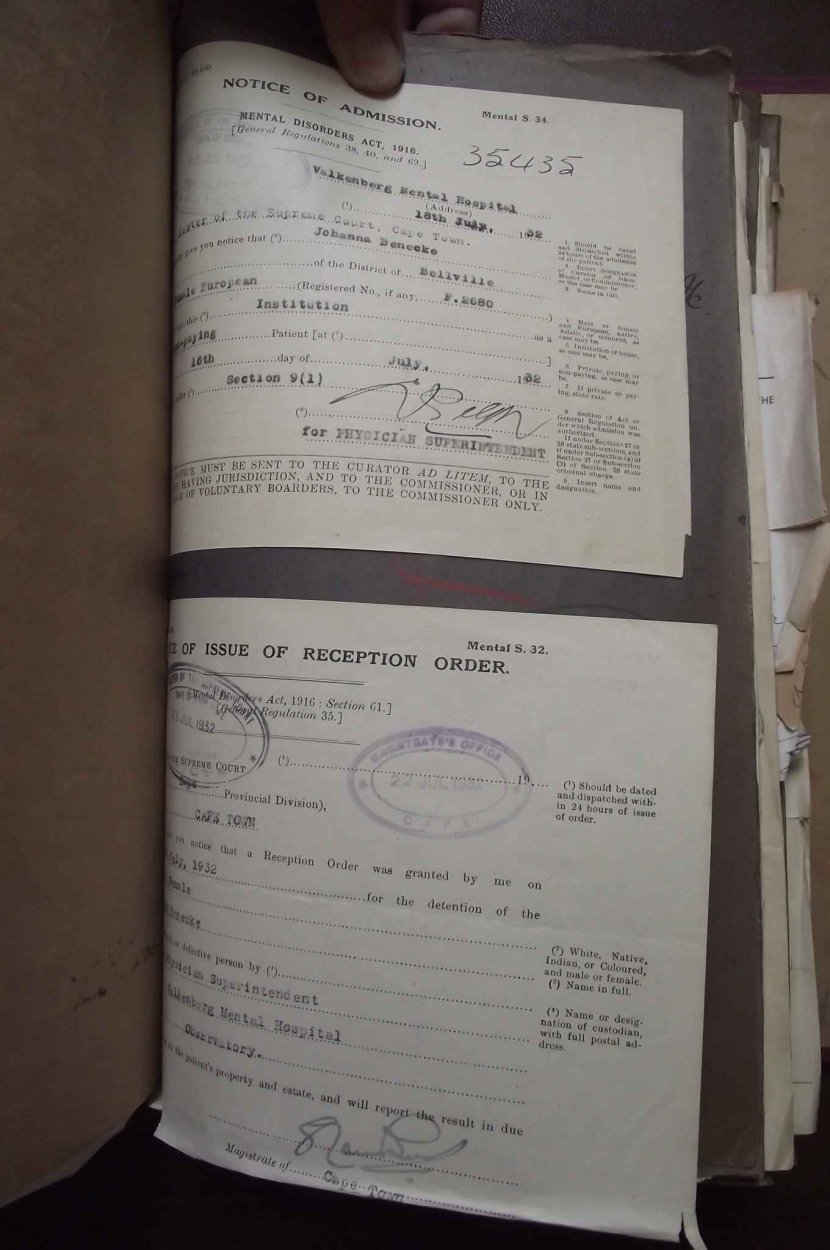 NOTICE OF ADMISSION.
Mental S. 34.
MENTAL DISORDERS ACT, 1916.
[General Regulations 38, 40, and 69.]
35435
Valkenberg Mental Hospital
(Address)
(¹) 18th July, 1932
of the Supreme Court, Cape Town.
give you notice that (²) Johanna Benecke
of the District of Bellville
European (Registered No., if any, F.2680 )
this (⁵) Institution as a
paying Patient [at (⁷) ]
16th day of July, 1932
(⁸) Section 9(1)
(⁹)
for PHYSICIAN SUPERINTENDENT
NOTICE MUST BE SENT TO THE CURATOR AD LITEM, TO THE
HAVING JURISDICTION, AND TO THE COMMISSIONER, OR IN
OF VOLUNTARY BOARDERS, TO THE COMMISSIONER ONLY.
1. Should be dated
and dispatched within
24 hours of the admission
of the patient.
2. Insert designation
of Curator ad litem,
Master, or Commissioner,
as the case may be.
3. Name in full.
4. Male or female
and European, native,
Asiatic, or coloured, as
case may be.
5. Institution or house,
as case may be.
6. Private, paying, or
non-paying, as case may
be.
7. If private or pay-
ing, state rate.
8. Section of Act or
General Regulation un-
der which admission was
authorized.
If under Section 27 or
28 state sub-sections, and
if under Sub-section (4) of
Section 27 or Sub-section
(3) of Section 28 state
criminal charge.
9. Insert name and
designation.
THE
OF ISSUE OF RECEPTION ORDER.
Mental S. 32.
[Mental Disorders Act, 1916 : Section 61.]
[General Regulation 35.]
JUL 1932
SUPREME COURT
(¹) 19
MAGISTRATE'S OFFICE
22 JUL 1932
CAPE
Provincial Division),
CAPE TOWN
(¹) Should be dated
and dispatched with-
in 24 hours of issue
of order.
you notice that a Reception Order was granted by me on
July, 1932 for the detention of the
Female
Benecke
or defective person by (⁴)
Physician Superintendent
Valkenberg Mental Hospital
Observatory.
the patient's property and estate, and will report the result in due
(²) White, Native,
Indian, or Coloured,
and male or female.
(³) Name in full.
(⁴) Name or desig-
nation of custodian,
with full postal ad-
dress.
Magistrate of Cape Town